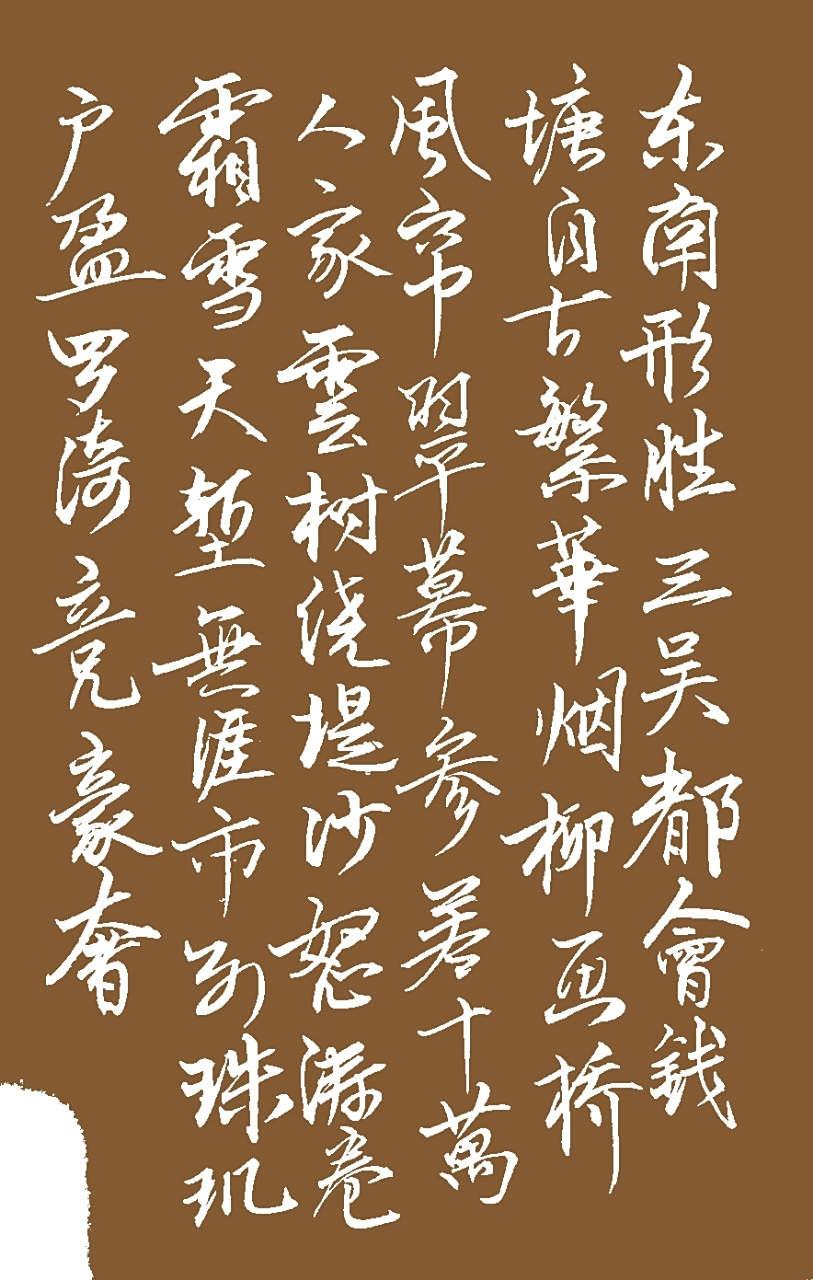 东南形胜三吴都會銭
塘自古繁華烟柳画桥
風帘翠幕参差十萬
人家雲树绕堤沙怒涛卷
霜雪天堑無涯市列珠玑
户盈罗漪竞豪奢